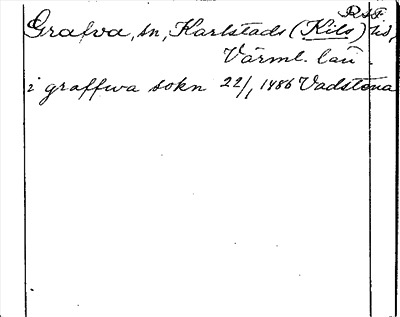 R & F
Grafva, sn, Karlstads (Kils) tid,
Värml. län.
i graffwa sokn 22/1 1486 Vadstena